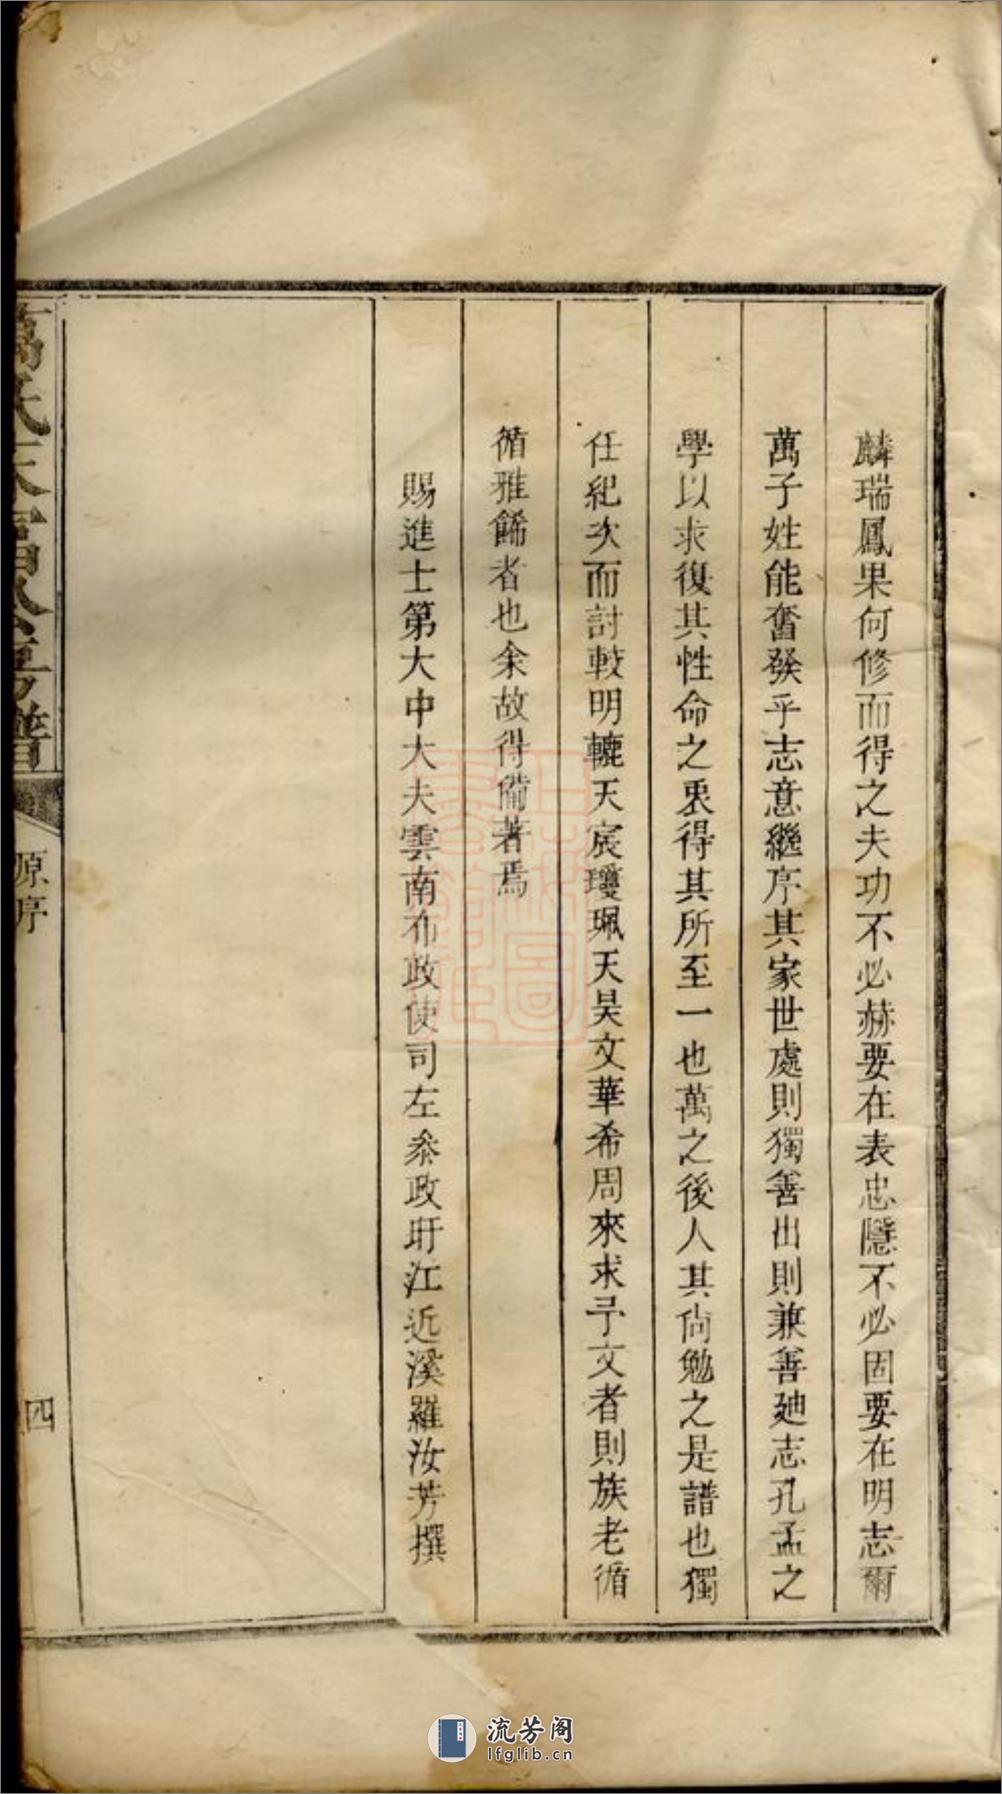 麟瑞鳳果何修而得之夫功不必赫要在表忠隱不必固要在明志爾
萬子姓能奮發乎志意繼序其家世處則獨善出則兼善廸志孔孟之
學以求復其性命之眞得其所至一也萬之後人其尙勉之是譜也獨
任紀次而討較明轆天宸瓊珮天昊文華希周來求予文者則族老循
循雅餙者也余故得備著焉
賜進士第大中大夫雲南布政使司左叅政盱江近溪羅汝芳撰
原序
四
流芳阁
lfglib.cn